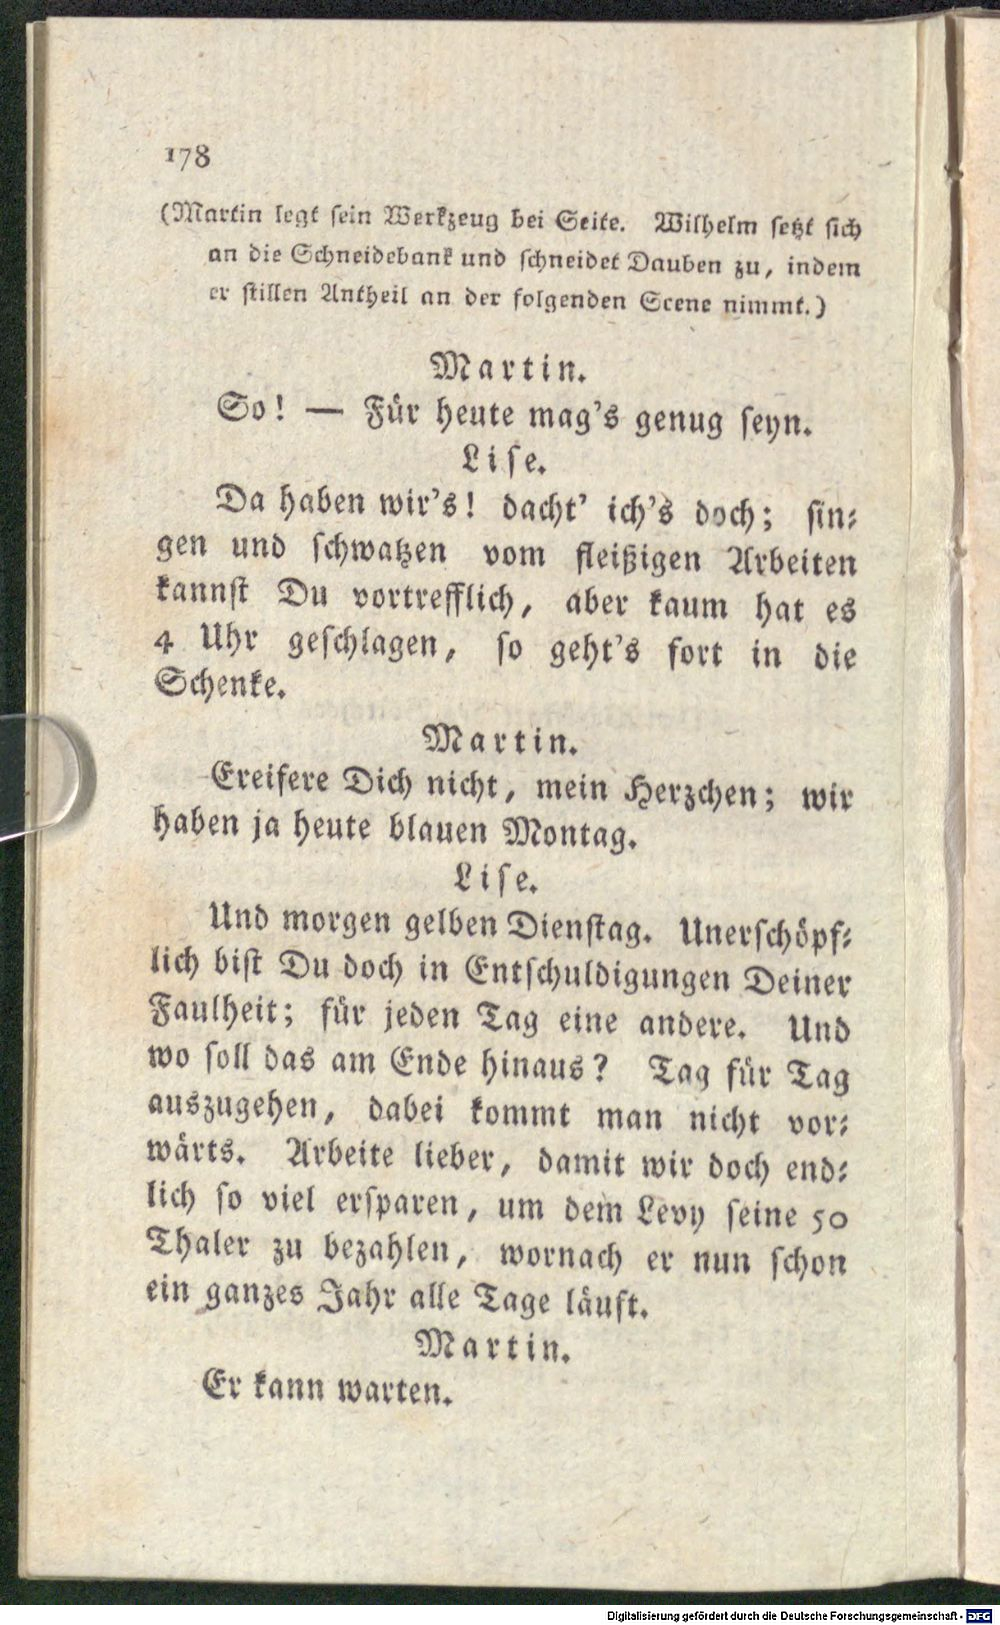 178
(Martin legt sein Werkzeug bei Seite. Wilhelm setzt sich
an die Schneidebank und schneidet Dauben zu, indem
er stillen Antheil an der folgenden Scene nimmt.)
Martin.
So! — Für heute mag's genug seyn.
Lise.
Da haben wir's! dacht' ich's doch; sin-
gen und schwatzen vom fleißigen Arbeiten
kannst Du vortrefflich, aber kaum hat es
4 Uhr geschlagen, so geht's fort in die
Schenke.
Martin.
Ereifere Dich nicht, mein Herzchen; wir
haben ja heute blauen Montag.
Lise.
Und morgen gelben Dienstag. Unerschöpf-
lich bist Du doch in Entschuldigungen Deiner
Faulheit; für jeden Tag eine andere. Und
wo soll das am Ende hinaus? Tag für Tag
auszugehen, dabei kommt man nicht vor-
wärts. Arbeite lieber, damit wir doch end-
lich so viel ersparen, um dem Levy seine 50
Thaler zu bezahlen, wornach er nun schon
ein ganzes Jahr alle Tage läuft.
Martin.
Er kann warten.
Digitalisierung gefördert durch die Deutsche Forschungsgemeinschaft - DFG